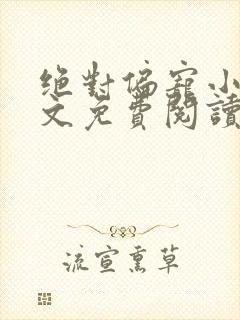 絕對偏寵小
文免費閱讀
流宣熏草